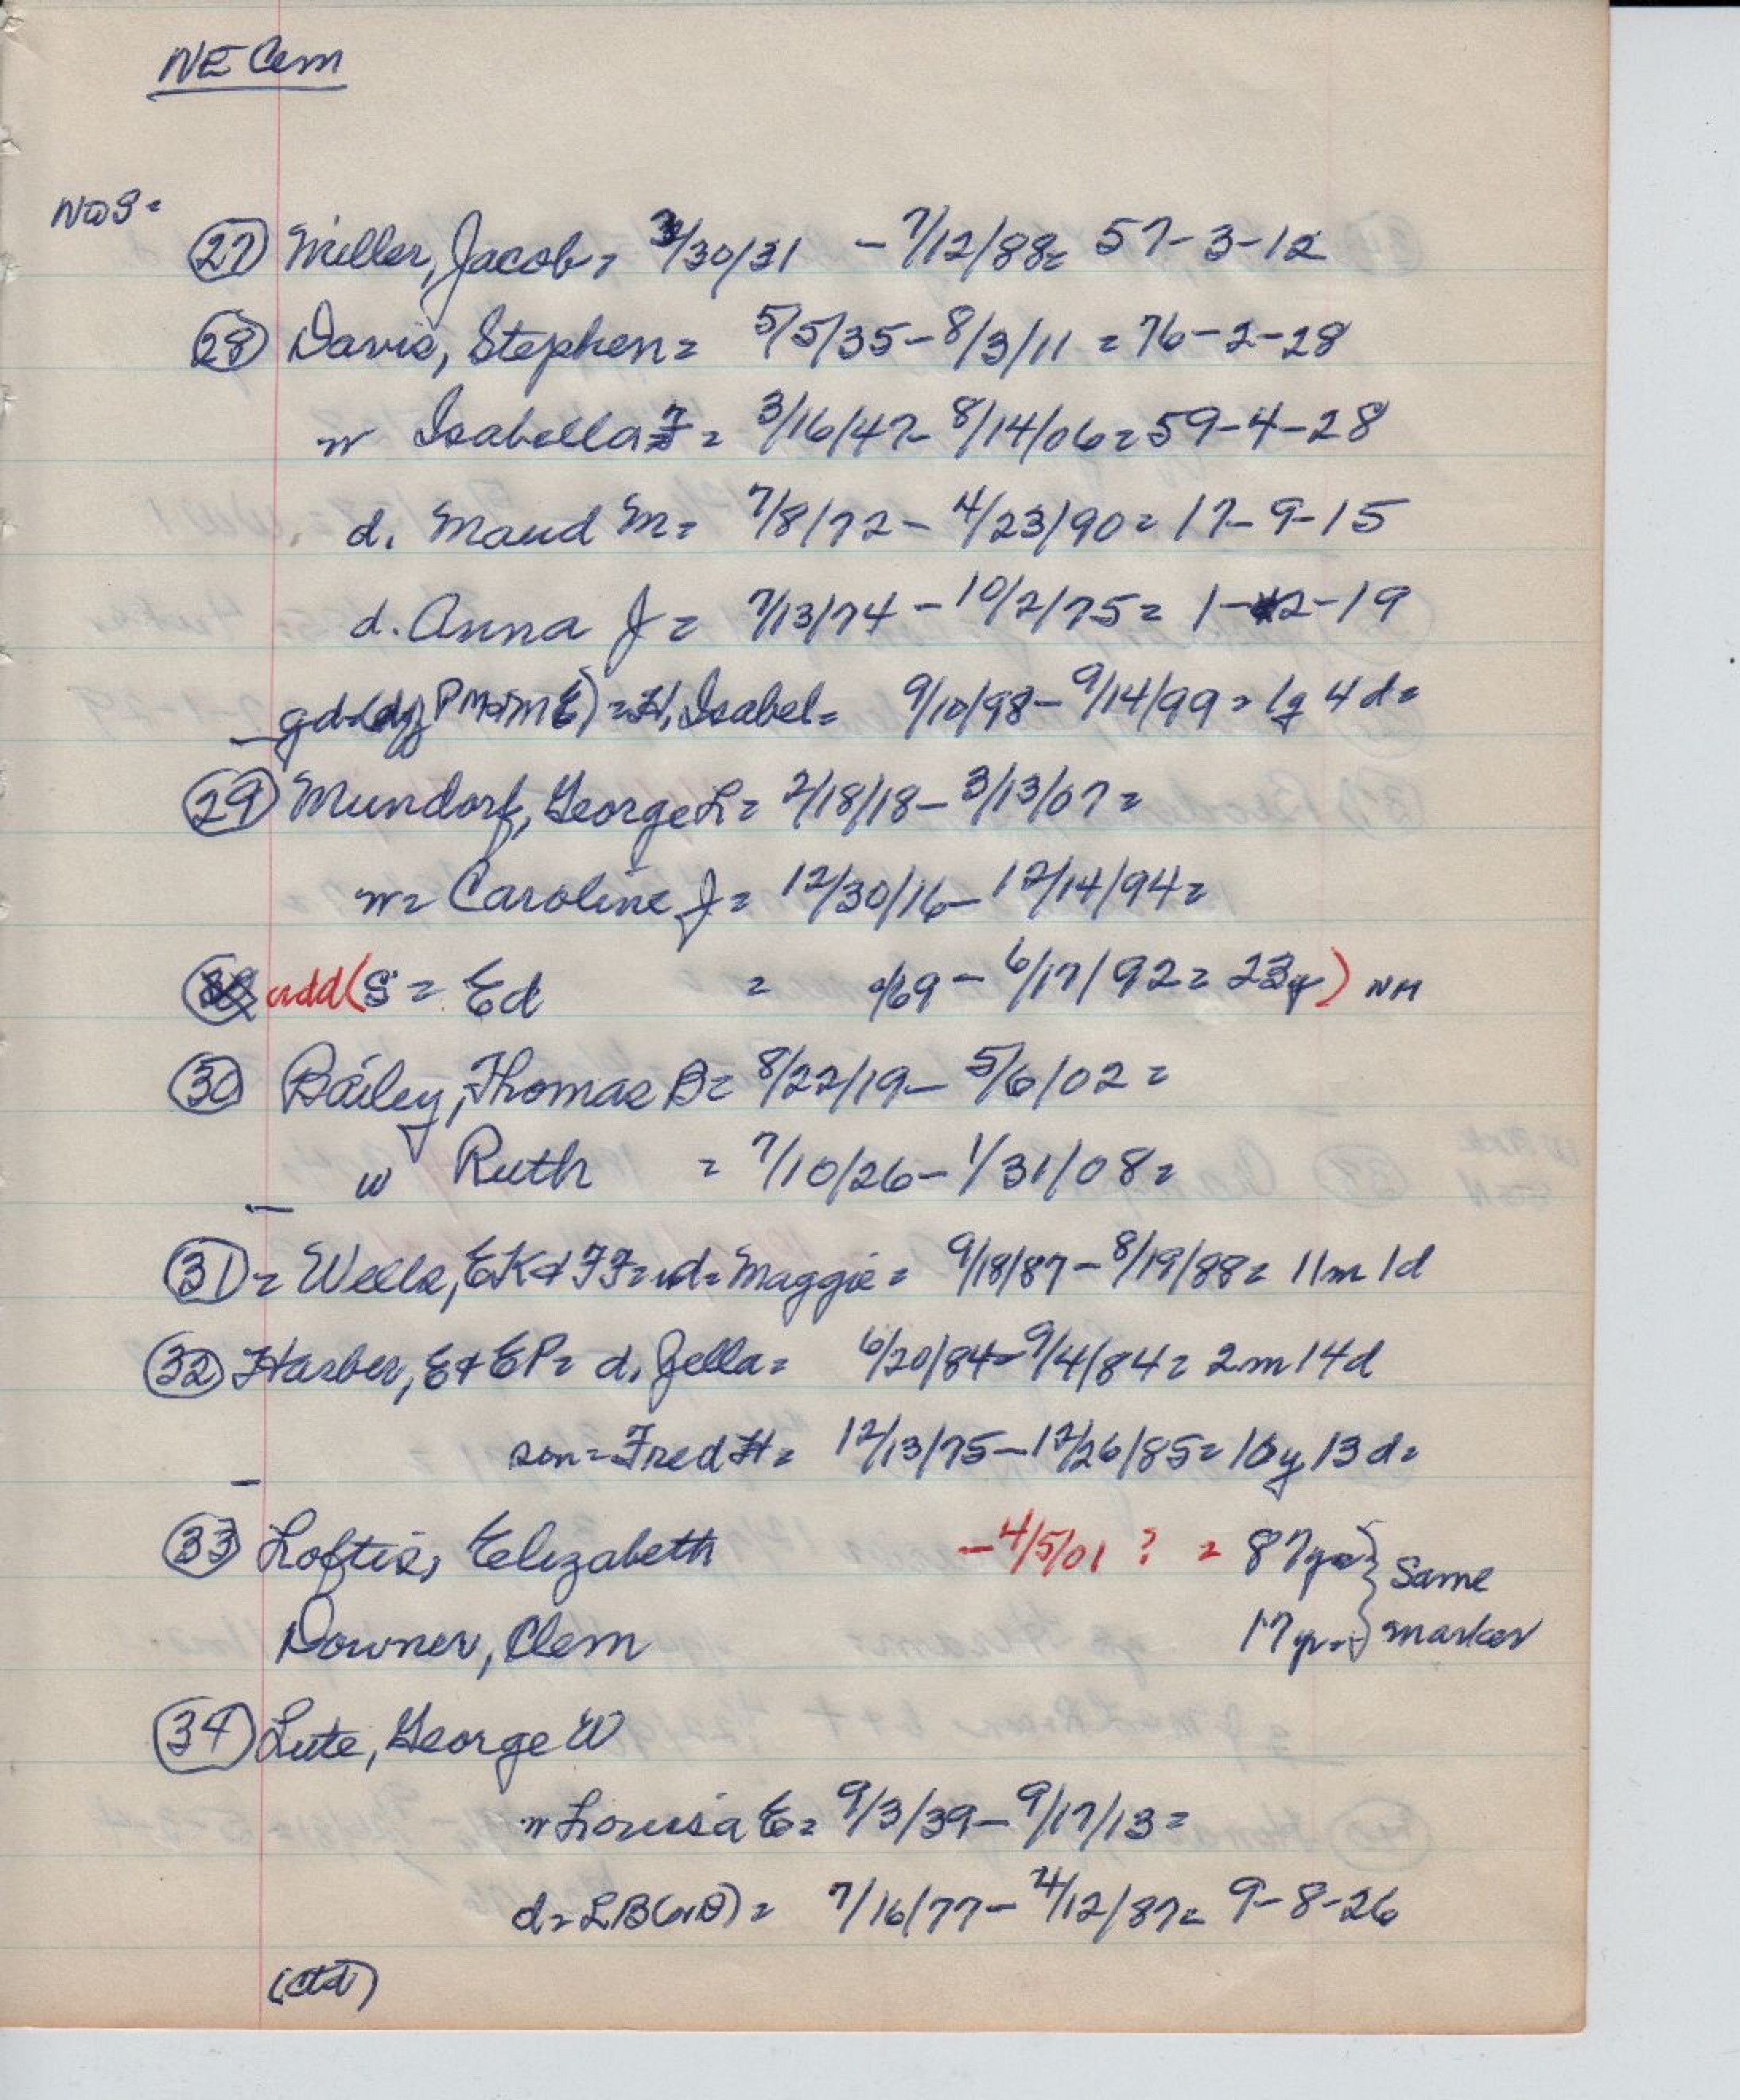 NE Cem
N@S =
(27) Miller, Jacob = 3/30/31 - 7/12/88 = 57-3-12
(28) Davis, Stephen = 5/5/35 - 8/3/11 = 76-2-28
w Isabella F = 3/16/47 - 8/14/06 = 59-4-28
d. Maud M = 7/8/72 - 4/23/90 = 17-9-15
d. Anna J = 7/13/74 - 10/2/75 = 1-2-19
gd = (d of PM & M E) = H, Isabel = 9/10/98 - 9/14/99 = 1y 4d =
(29) Mundorf, George L = 2/18/18 - 3/13/07 =
w = Caroline J = 12/30/16 - 12/14/94 =
add (S = Ed = /69 - 6/17/92 = 23y) NM
(30) Bailey, Thomas B = 8/22/19 - 5/6/02 =
w Ruth = 7/10/26 - 1/31/08 =
(31) = Wells, EK & FF = d = Maggie = 9/18/87 - 8/19/88 = 11m 1d
(32) Harber, E & EP = d. Zella = 6/20/84 - 9/4/84 = 2m 14d
son = Fred H = 12/13/75 - 12/26/85 = 10y 13d =
(33) Loftis, Elizabeth - 4/5/01 ? = 87yrs } Same
Downer, Clem 17yrs } marker
(34) Lute, George W
w Louisa E = 9/3/39 - 9/17/13 =
d = LB (or D) = 7/16/77 - 4/12/87 = 9-8-26
(ctd)